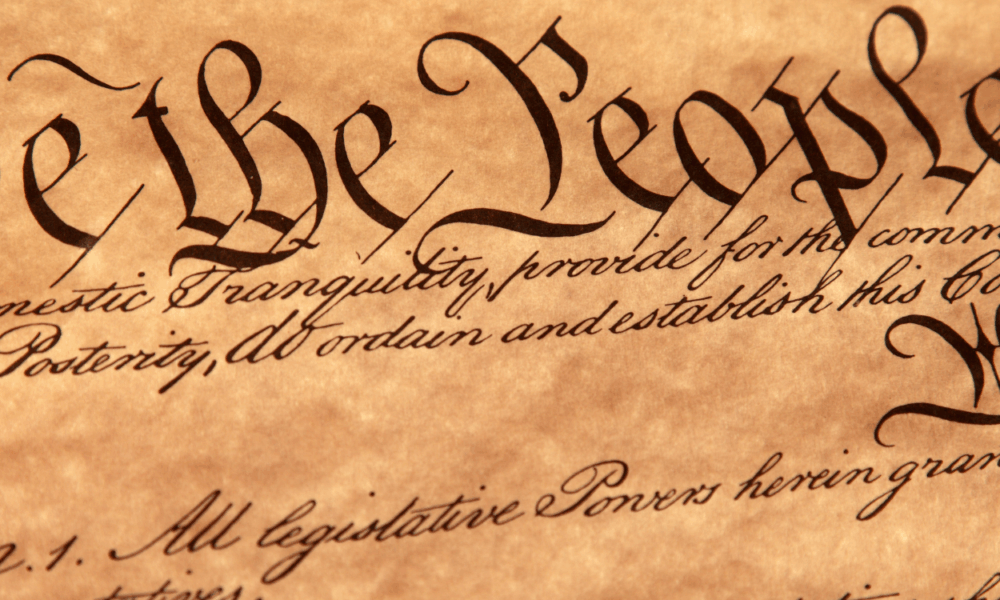 e the People
mestic Tranquility, provide for the comm
Posterity, do ordain and establish this Co
n. 1. All legislative Powers herein gran